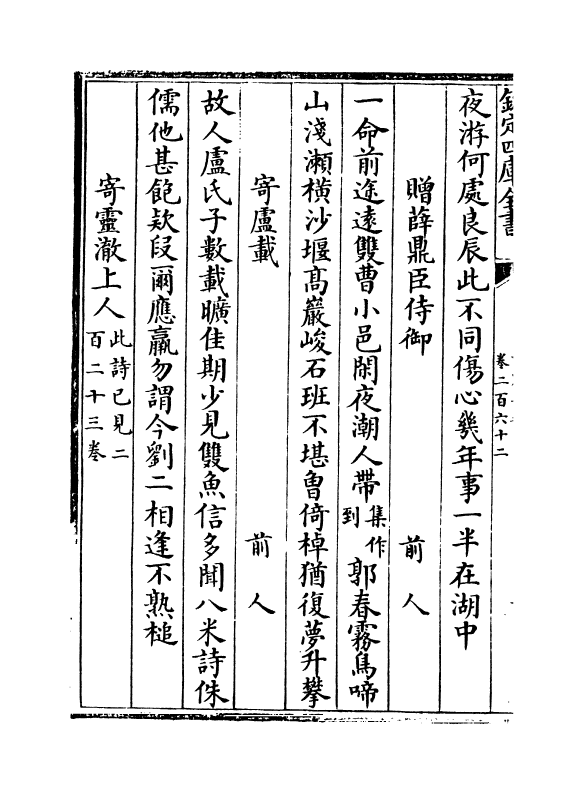 欽定四庫全書
卷二百六十二
夜游何處良辰此不同傷心幾年事一半在湖中
贈薛鼎臣侍御　前人
一命前途遠雙曹小邑閑夜潮人帶集作到郭春霧鳥啼
山淺瀬橫沙堰髙巖峻石班不堪曾倚棹猶復夢升攀
寄盧載　前人
故人盧氏子數載曠佳期少見雙魚信多聞八米詩侏
儒他甚飽欵段爾應羸勿謂今劉二相逢不熟槌
寄靈澈上人此詩已見二百二十三卷